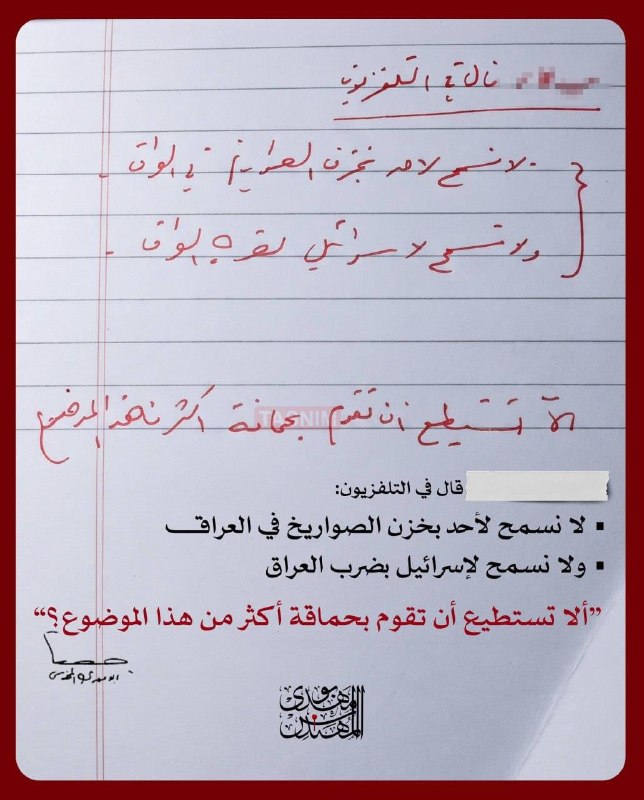 قال في التلفزيون
لا نسمح لاحد بخزن الصواريخ في العراق.
ولا نسمح لاسرائيل بضرب العراق.
الا تستطيع ان تقوم بحماقة اكثر من هذا الموضوع
TASNIM
قال في التلفزيون:
▪ لا نسمح لأحد بخزن الصواريخ في العراق
▪ ولا نسمح لإسرائيل بضرب العراق
”ألا تستطيع أن تقوم بحماقة أكثر من هذا الموضوع؟“
ابو مهدي المهندس
أبو مهدي المهندس